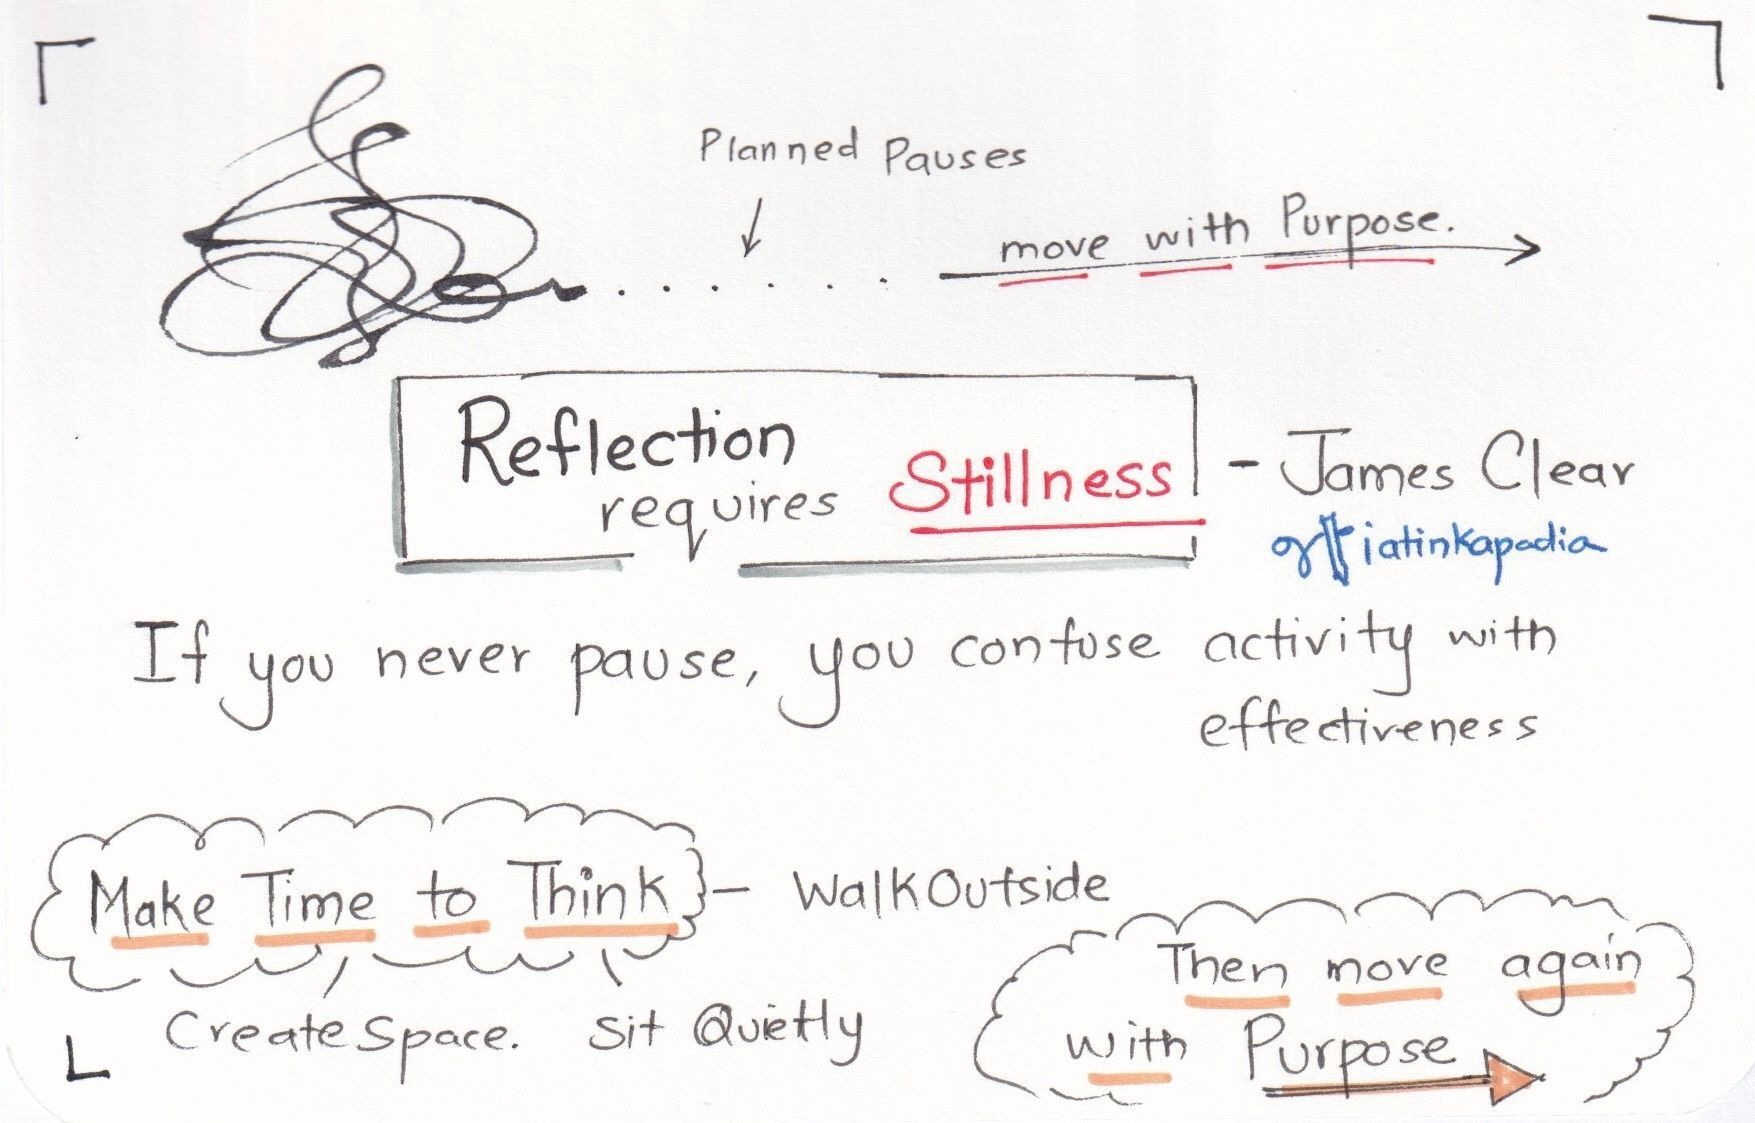 Planned Pauses
move with Purpose.
Reflection
requires Stillness
- James Clear
jatinkapadia
If you never pause, you confuse activity with
effectiveness
Make Time to Think - Walk Outside
Create Space. Sit Quietly
Then move again
with Purpose